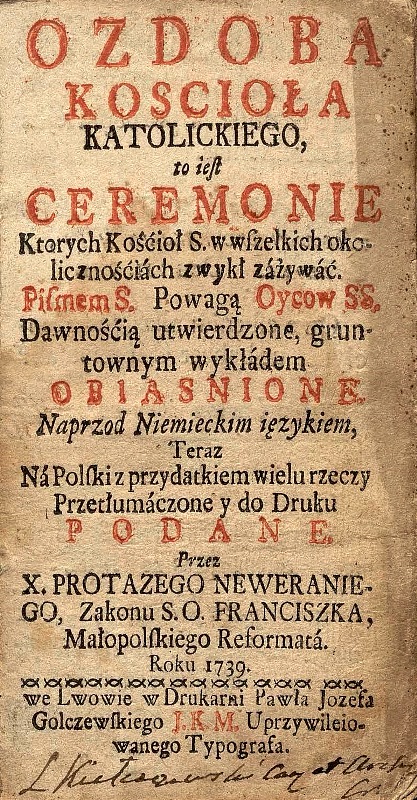 OZDOBA
KOSCIOŁA
KATOLICKIEGO,
to ieſt
CEREMONIE
Ktorych Kośćioł S. w wſzelkich oko-
licznośćiách zwykł záżywáć.
Piſmem S. Powagą Oycow SS.
Dawnośćią utwierdzone, grun-
townym wykłádem
OBIASNIONE.
Naprzod Niemieckim ięzykiem,
Teraz
Ná Polſki z przydatkiem wielu rzeczy
Przetłumáczone y do Druku
PODANE.
Przez
X. PROTAZEGO NEWERANIE-
GO, Zakonu S. O. FRANCISZKA,
Małopolſkiego Reformatá.
Roku 1739.
we Lwowie w Drukarni Pawła Jozefa
Golczewſkiego J. K M. Uprzywileio-
wanego Typografa.